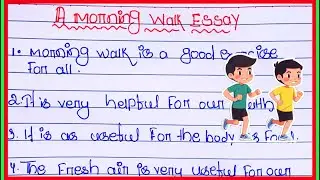 A Morning Walk ESSAY
1. Morning walk is a good
for all.
2. It is very helpful for our
3. It is as useful for the body as
4. The fresh air is very useful for our